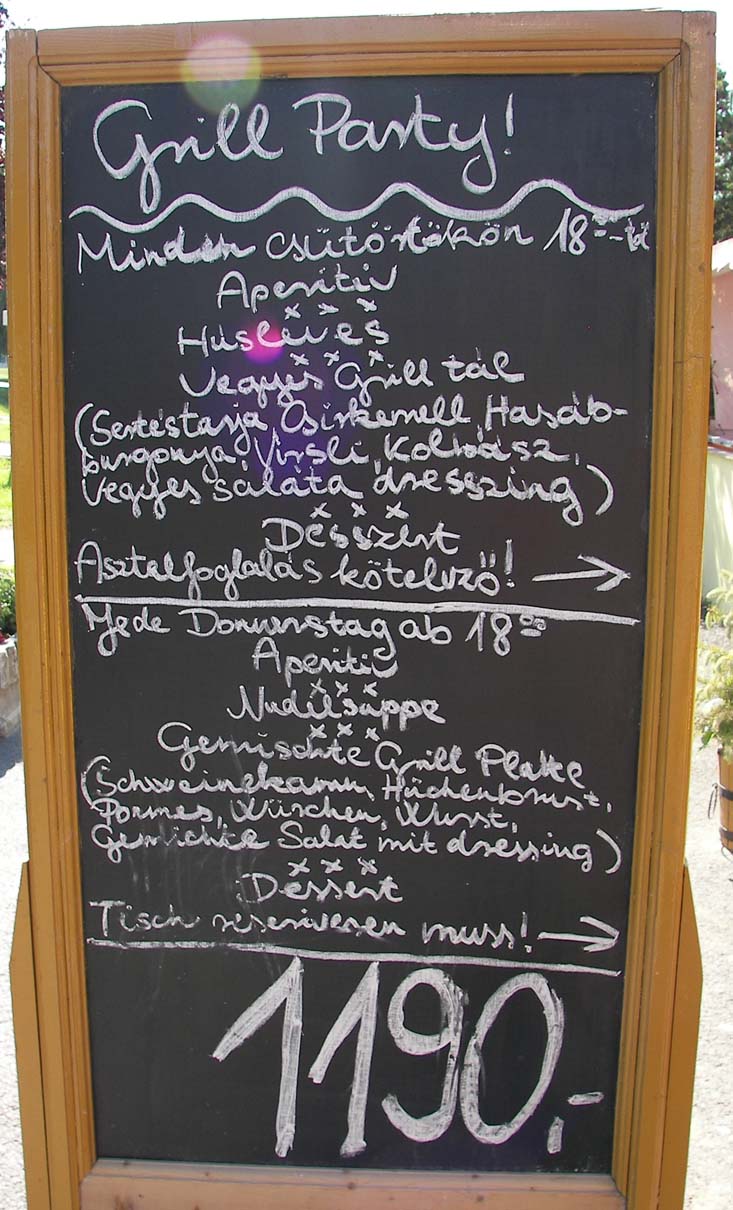 Grill Party!
Minden csütörtökön 18⁰⁰-tól
Aperitiv
x x x
Húsleves
x x x
Vegyes Grill tál
(Sertéstarja, Csirkemell, Hasáb-
burgonya, Virsli, Kolbász,
Vegyes saláta dresszing)
x x x
Desszert
Asztalfoglalás kötelező! →
Jede Donnerstag ab 18⁰⁰
Aperitiv
x x x
Nudelsuppe
x x x
Gemischte Grill Platte
(Schweinekamm, Hüchenbrust,
Pormes, Würschen, Wurst,
Gemichte Salat mit dressing)
x x x
Dessert
Tisch reserivesen muss! →
1190,-